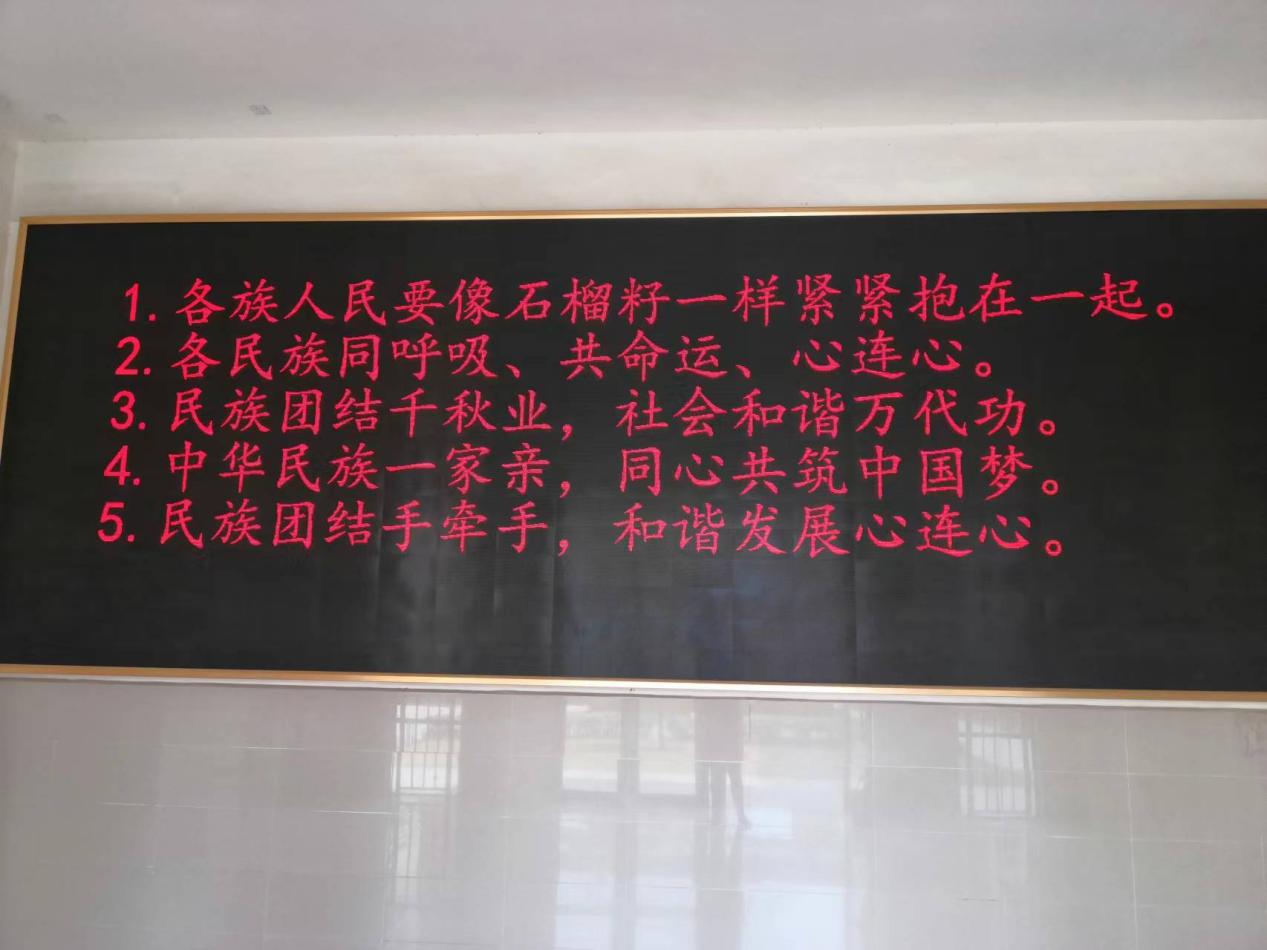 1. 各族人民要像石榴籽一样紧紧抱在一起。
2. 各民族同呼吸、共命运、心连心。
3. 民族团结千秋业，社会和谐万代功。
4. 中华民族一家亲，同心共筑中国梦。
5. 民族团结手牵手，和谐发展心连心。